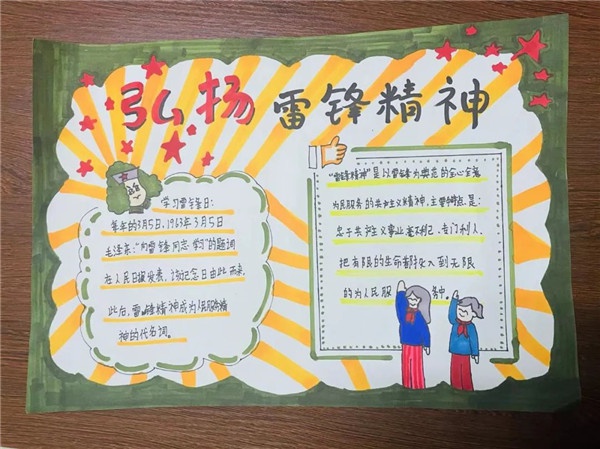 弘扬雷锋精神
学习雷锋日:
每年的3月5日,1963年3月5日
毛泽东:“向雷锋同志学习”的题词
在人民日报发表,该纪念日由此而来,
此后,雷锋精神成为为人民服务精
神的代名词。
“雷锋精神”是以雷锋为典范的全心全意
为民服务的共产主义精神,主要特点是:
忠于共产主义事业,毫不利己,专门利人,
把有限的生命都投入到无限
的为人民服务中。